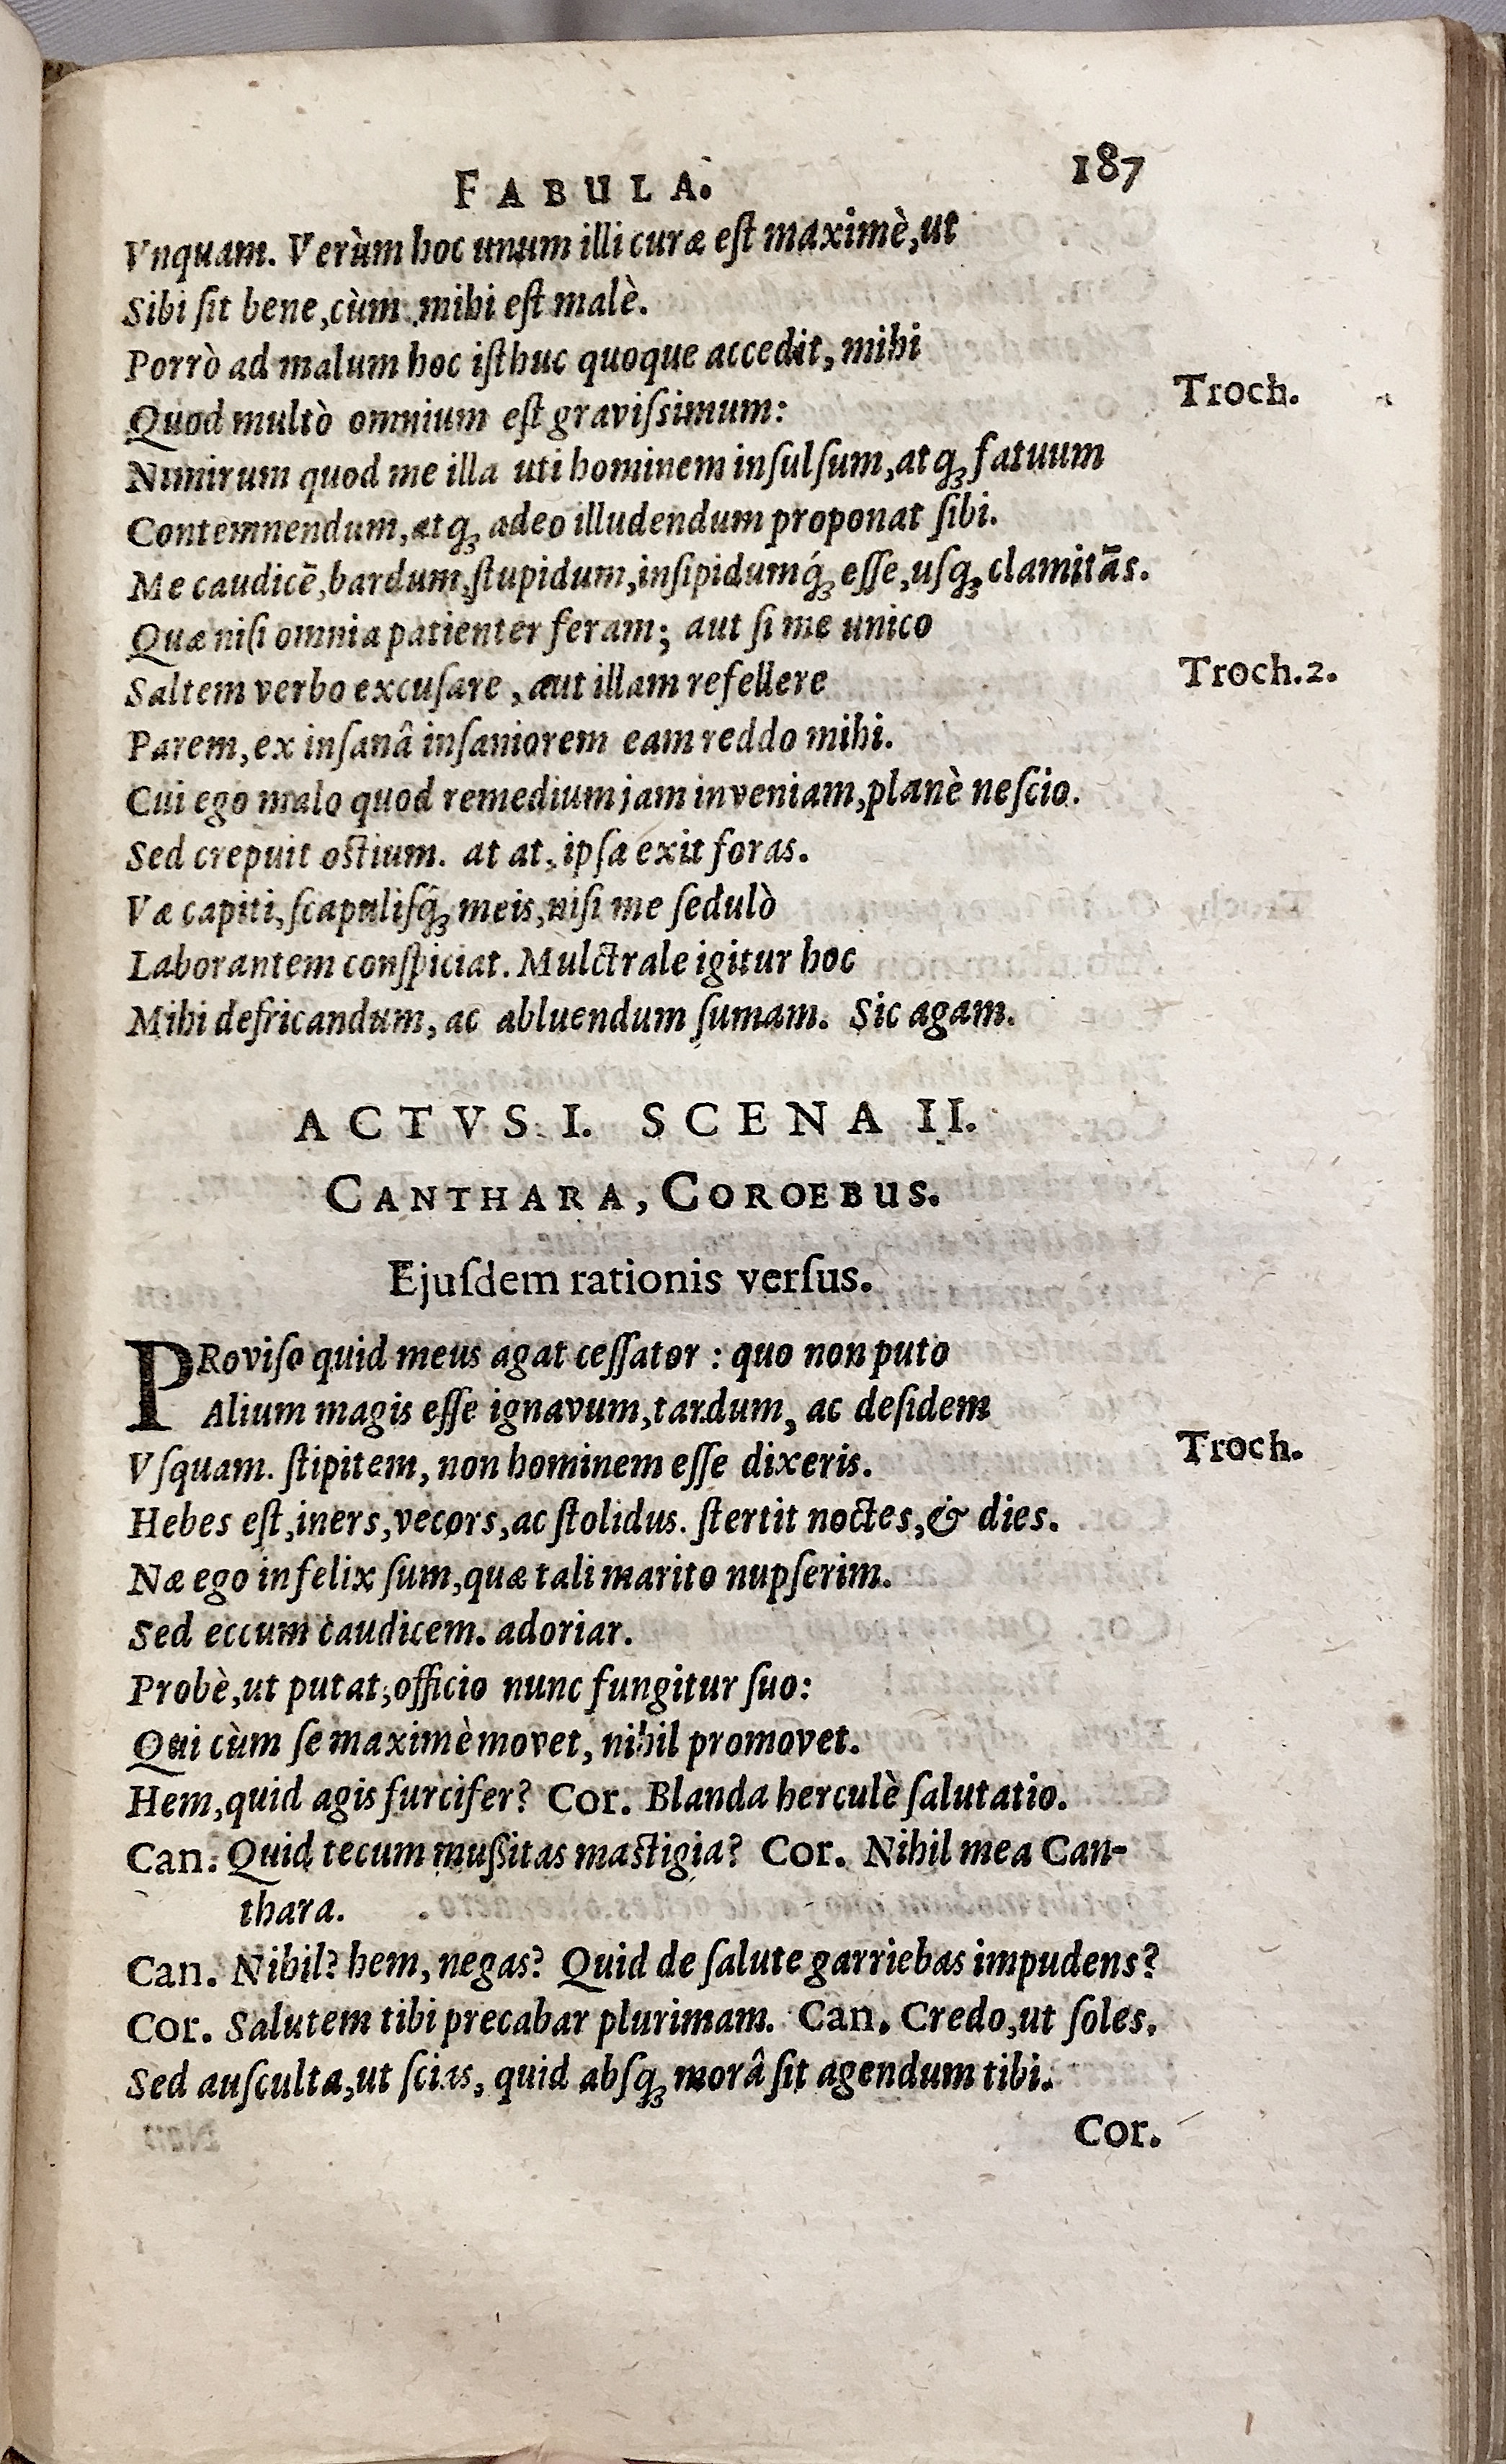 FABULA.
187
Vnquam. Verùm hoc unum illi curæ eſt maximè,ut
Sibi ſit bene,cùm mihi eſt malè.
Porrò ad malum hoc iſthuc quoque accedit, mihi
Troch.
Quod multò omnium eſt graviſsimum:
Nimirum quod me illa uti hominem inſulſum,atq; fatuum
Contemnendum,atq; adeo illudendum proponat ſibi.
Me caudicē,bardum,ſtupidum,inſipidumq́; eſſe,uſq; clamitās.
Quæ niſi omnia patienter feram; aut ſi me unico
Saltem verbo excuſare , aut illam refellere
Troch.2.
Parem,ex inſanâ inſaniorem eam reddo mihi.
Cui ego malo quod remedium jam inveniam,planè neſcio.
Sed crepuit oſtium. at at, ipſa exit foras.
Væ capiti,ſcapuliſq́; meis,niſi me ſedulò
Laborantem conſpiciat. Mulctrale igitur hoc
Mihi defricandum, ac abluendum ſumam. Sic agam.
ACTVS I. SCENA II.
CANTHARA, COROEBUS.
Ejuſdem rationis verſus.
PRoviſo quid meus agat ceſſator : quo non puto
Alium magis eſſe ignavum,tardum, ac deſidem
Vſquam. ſtipitem, non hominem eſſe dixeris.
Troch.
Hebes eſt,iners,vecors,ac ſtolidus. ſtertit noctes,& dies.
Næ ego infelix ſum,quæ tali marito nupſerim.
Sed eccum caudicem. adoriar.
Probè,ut putat,officio nunc fungitur ſuo:
Qui cùm ſe maximè movet, nihil promovet.
Hem,quid agis furcifer? Cor. Blanda herculè ſalutatio.
Can. Quid tecum muſsitas maſtigia? Cor. Nihil mea Can-
thara.
Can. Nihil? hem, negas? Quid de ſalute garriebas impudens?
Cor. Salutem tibi precabar plurimam. Can. Credo,ut ſoles.
Sed auſculta,ut ſcias, quid abſq; morâ ſit agendum tibi.
Cor.